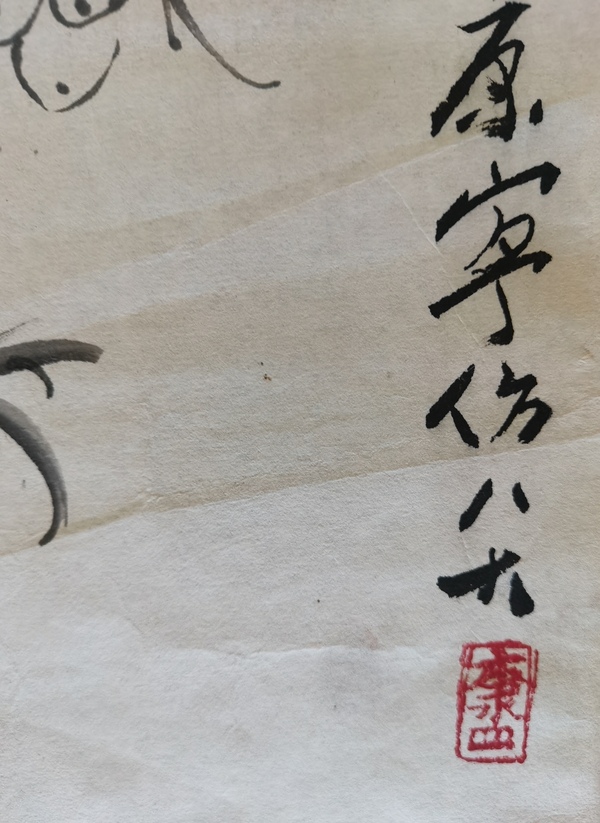 原寧仿八大